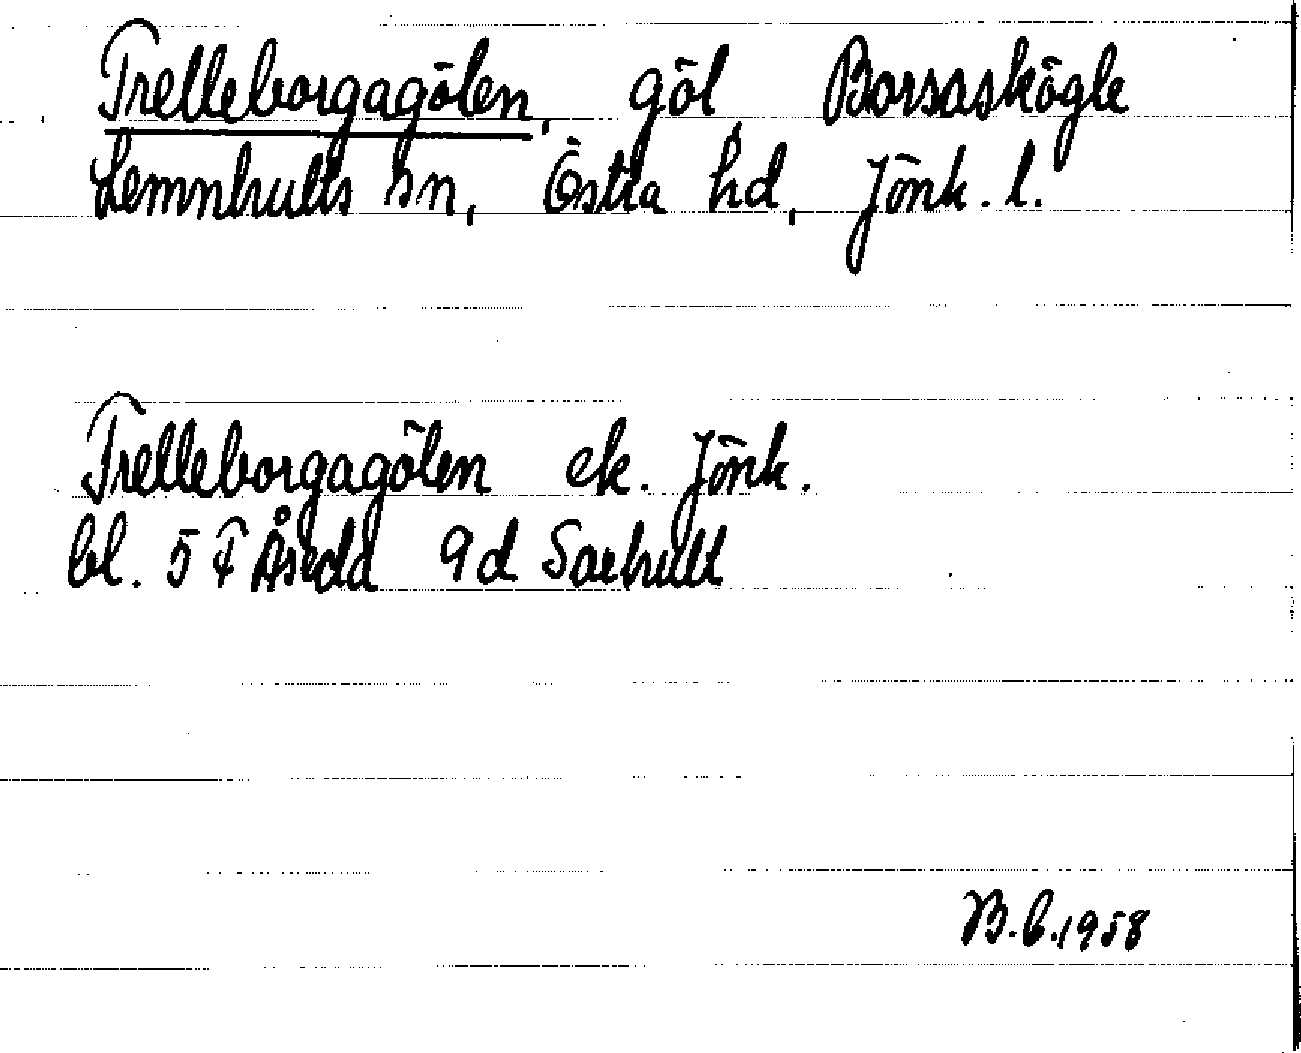 Trelleborgagölen, göl Borsaskögle
Lemnhults sn, Östra hd, Jönk. l.
Trelleborgagölen ek. Jönk.
bl. 5 F Åseda 9d Saehult
B.b.1958